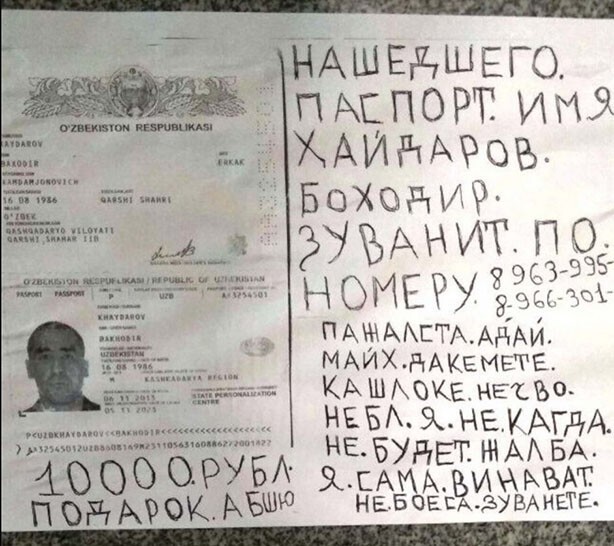 O'ZBEKISTON RESPUBLIKASI
HAYDAROV
BAXODIR
ERKAK
HAMDAMJONOVICH
16 08 1986
QARSHI SHAHRI
O'ZBEK
QASHQADARYO VILOYATI
QARSHI SHAHAR IIB
O'ZBEKISTON RESPUBLIKASI / REPUBLIC OF UZBEKISTAN
PASPORT PASSPORT P UZB
KHAYDAROV
BAKHODIR
UZBEKISTAN
16 08 1986
M KASHKADARYA REGION
06 11 2013
STATE PERSONALIZATION
CENTRE
05 11 2023
НАШЕДШЕГО.
ПАСПОРТ. ИМЯ
ХАЙДАРОВ.
БОХОДИР.
ЗУВАНИТ. ПО.
НОМЕРУ. 8 963-995-
8-966-301-
ПАЖАЛСТА. АДАЙ.
МАЙХ. ДАКЕМЕТЕ.
КАШЛОКЕ. НЕЧВО.
НЕБЛ. Я. НЕ. КАГДА.
НЕ. БУДЕТ. ЖАЛБА.
Я. САМА. ВИНАВАТ.
НЕ. БОЕСА. ЗУВАНЕТЕ.
10000. РУБЛ.
ПОДАРОК. АБШЮ